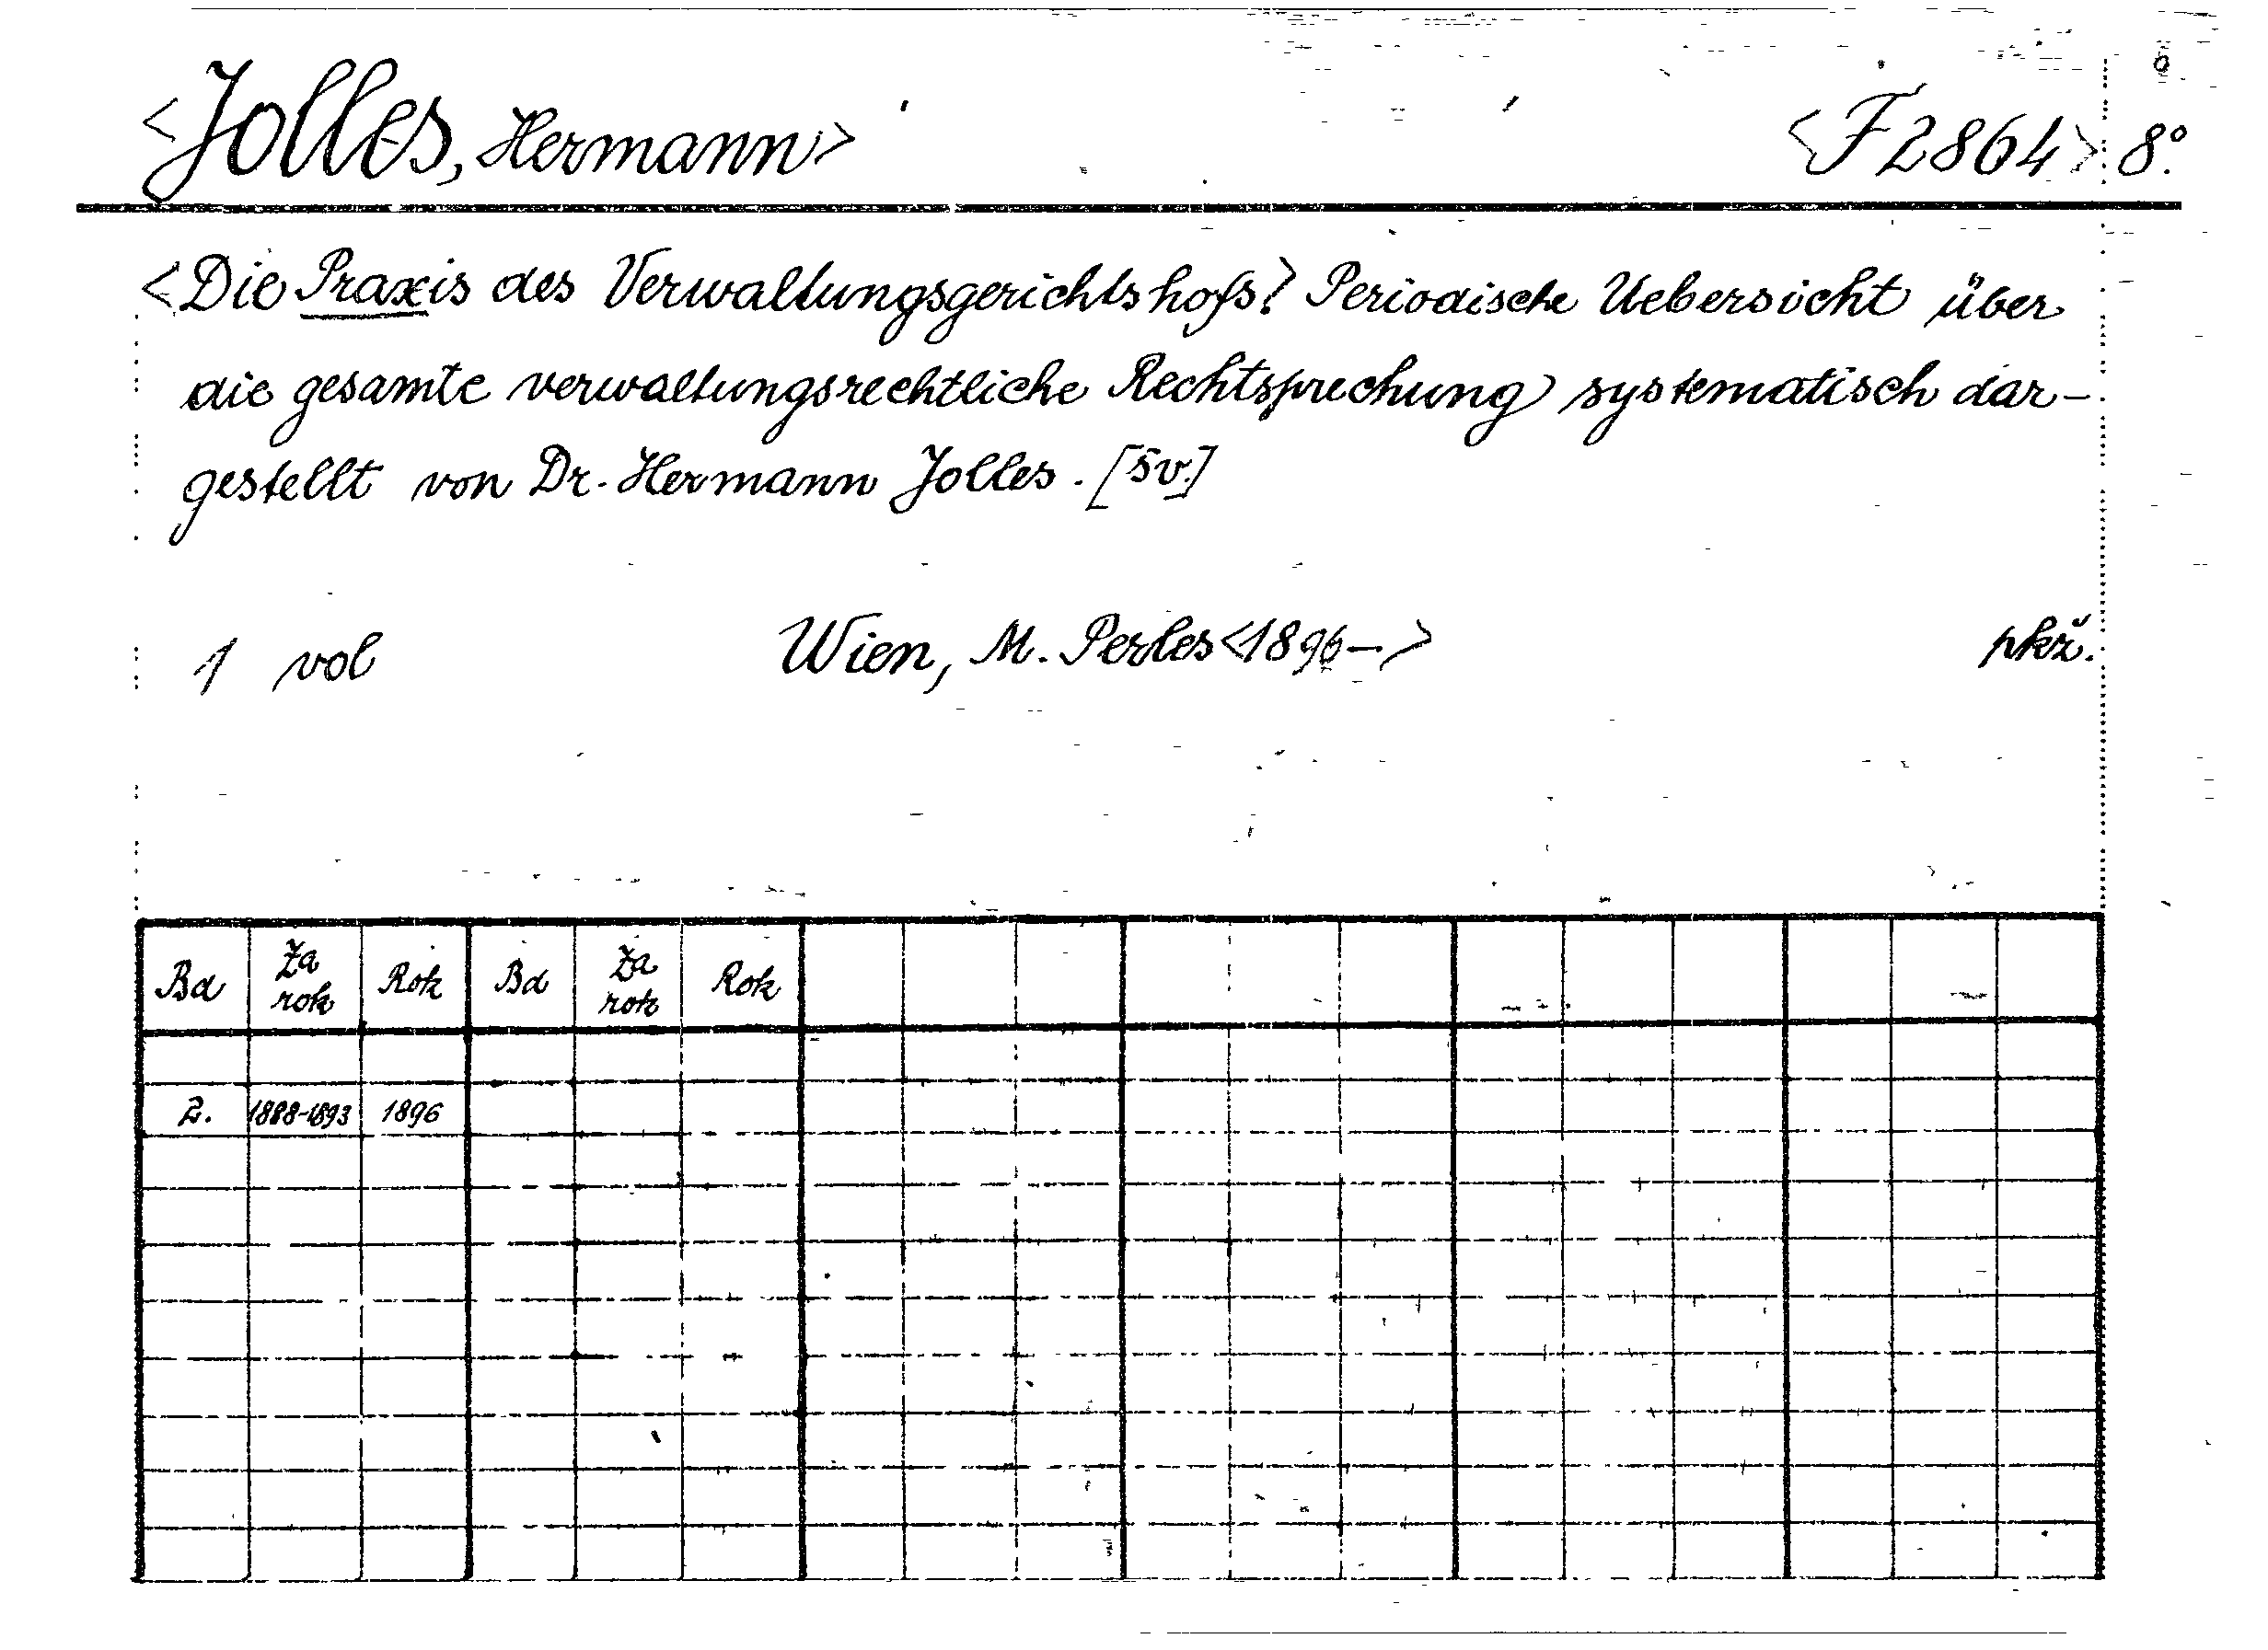 <Jolles, Hermann> <F 2864> 8°.
<Die Praxis des Verwaltungsgerichtshofs> Periodische Uebersicht über
die gesamte verwaltungsrechtliche Rechtsprechung systematisch dar-
gestellt von Dr. Hermann Jolles. [šv.]
1 vol Wien, M. Perles <1896-> pkž.
Bd Za rok Rok Bd Za rok Rok
2. 1888-1893 1896